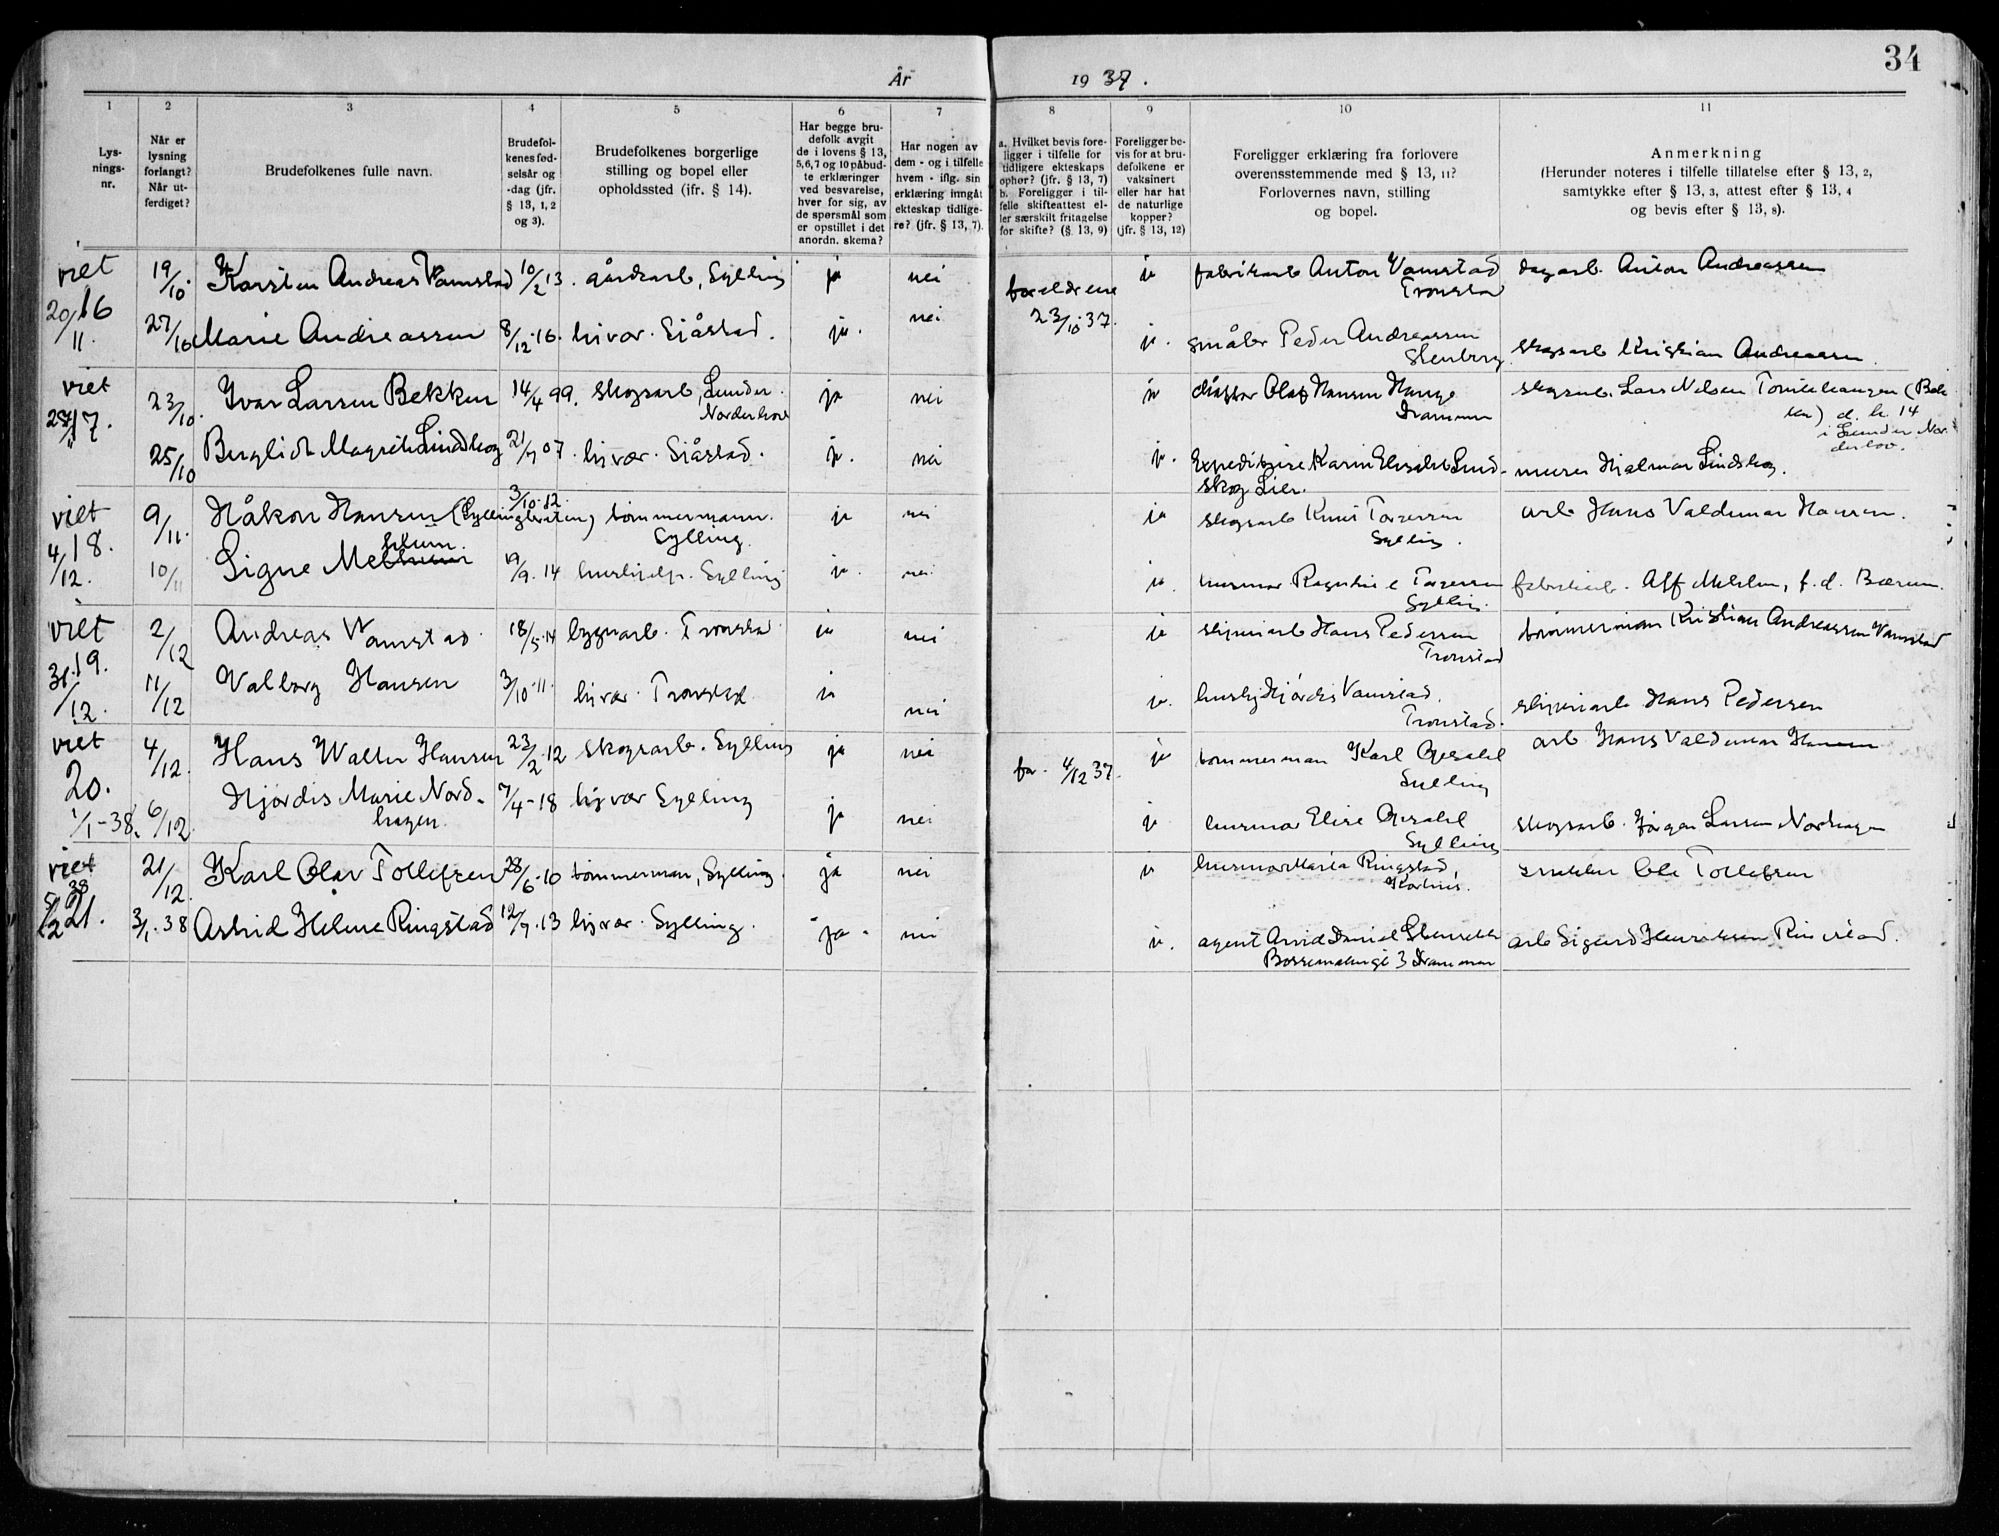 34
År 1937.
1
2
3
4
5
6
7
8
9
10
11
Lys-
nings-
nr.
Når er
lysning
forlangt?
Når ut-
ferdiget?
Brudefolkenes fulle navn.
Brudefol-
kenes fød-
selsår og
-dag (jfr.
§ 13, 1, 2
og 3).
Brudefolkenes borgerlige
stilling og bopel eller
opholdssted (jfr. § 14).
Har begge bru-
defolk avgit
de i lovens § 13,
5,6,7 og 10 påbud-
te erklæringer
ved besvarelse,
hver for sig, av
de spørsmål som
er opstillet i det
anordn. skema?
Har nogen av
dem - og i tilfelle
hvem - iflg. sin
erklæring inngåt
ekteskap tidlige-
re? (jfr. § 13, 7).
a. Hvilket bevis fore-
ligger i tilfelle for
tidligere ekteskaps
ophør? (jfr. § 13, 7)
b. Foreligger i til-
felle skifteattest el-
ler særskilt fritagelse
for skifte? (§ 13, 9)
Foreligger be-
vis for at bru-
defolkene er
vaksinert
eller har hat
de naturlige
kopper?
(jfr. § 13, 12)
Foreligger erklæring fra forlovere
overensstemmende med § 13, 11?
Forlovernes navn, stilling
og bopel.
Anmerkning
(Herunder noteres i tilfelle tillatelse efter § 13, 2,
samtykke efter § 13, 3, attest efter § 13, 4
og bevis efter § 13, 8).
viet 19/10 Karsten Andreas Vamstad 10/2 13. gårdsarb, Sylling ja nei foreldrene ja fabrikarb Anton Vamstad dagarb. Anton Andreassen
Tronstad
20/11. 16 23/10 37.
27/10 Marie Andreassen 8/12-16. hj. vær. Sjåstad. ja. nei ja. småbr Peder Andreassen skogsarb Kristian Andreassen.
Stenberg
viet 23/10. Ivar Larsen Bekken 14/4 99. skogsarb, Lunder ja nei ja Olaf Hansen Hauge skogsarb. Lars Nilsen (Bek
Norderhov Drammen ken) d. k. 14
17. i Lunder Nor.
derhov.
25/10 Berglioth Magrethe Lindskog 21/7 07. hj vær. Sjåstad. ja. nei ja. Expeditrise Karin Elisabet Lind- murer Hjalmar Lindskog.
skog Lier.
viet 9/11. Håkon Hansen (Syllingbråten) 3/10-12. tømmermann. ja nei ja skogsarb Knut Torgersen arb Hans Valdemar Hansen.
Sylling. Sylling.
4/12. 18. 10/11 Signe Mehlum. 19/9. 14 hushjelp. Sylling ja. nei. ja. husmor Ragnhild Torgersen fabrikarb. Alf Mehlum, f. d. Bærum.
Sylling.
viet 2/12 Andreas Vamstad 18/5-14 bygnarb. Tronstad ja nei ja sliperiarb Hans Pedersen tømmerman Kristian Andreassen Vamstad
Tronstad
31/12. 19. 11/12 Valborg Hansen 3/10-11. hj vær. Tronstad ja nei ja. hushj Hjørdis Vamstad. sliperiarb Hans Pedersen
Tronstad.
viet 4/12. Hans Walter Hansen 23/2-12 skogsarb. Sylling ja nei far. 4/12 37. ja tømmerman Karl Opsahl arb Hans Valdemar Hansen
Sylling
20. 1/1-38. 6/12. Hjørdis Marie Nord- 7/4-18 hj vær Sylling ja nei ja husmor Elise Opsahl skogsarb. Jørgen Larsen Nordhagen
hagen. Sylling
viet 21/12. Karl Olav Tollefsen 28/6-10 tømmerman, Sylling. ja nei ja husmor Maria Ringstad, snekker Ole Tollefsen
5/2 38 21. 3/1-38 Astrid Helene Ringstad 12/7-13 hj vær. Sylling. ja. nei ja. agent Arvid Daniel arb Sigurd Ringstad.
3 Drammen